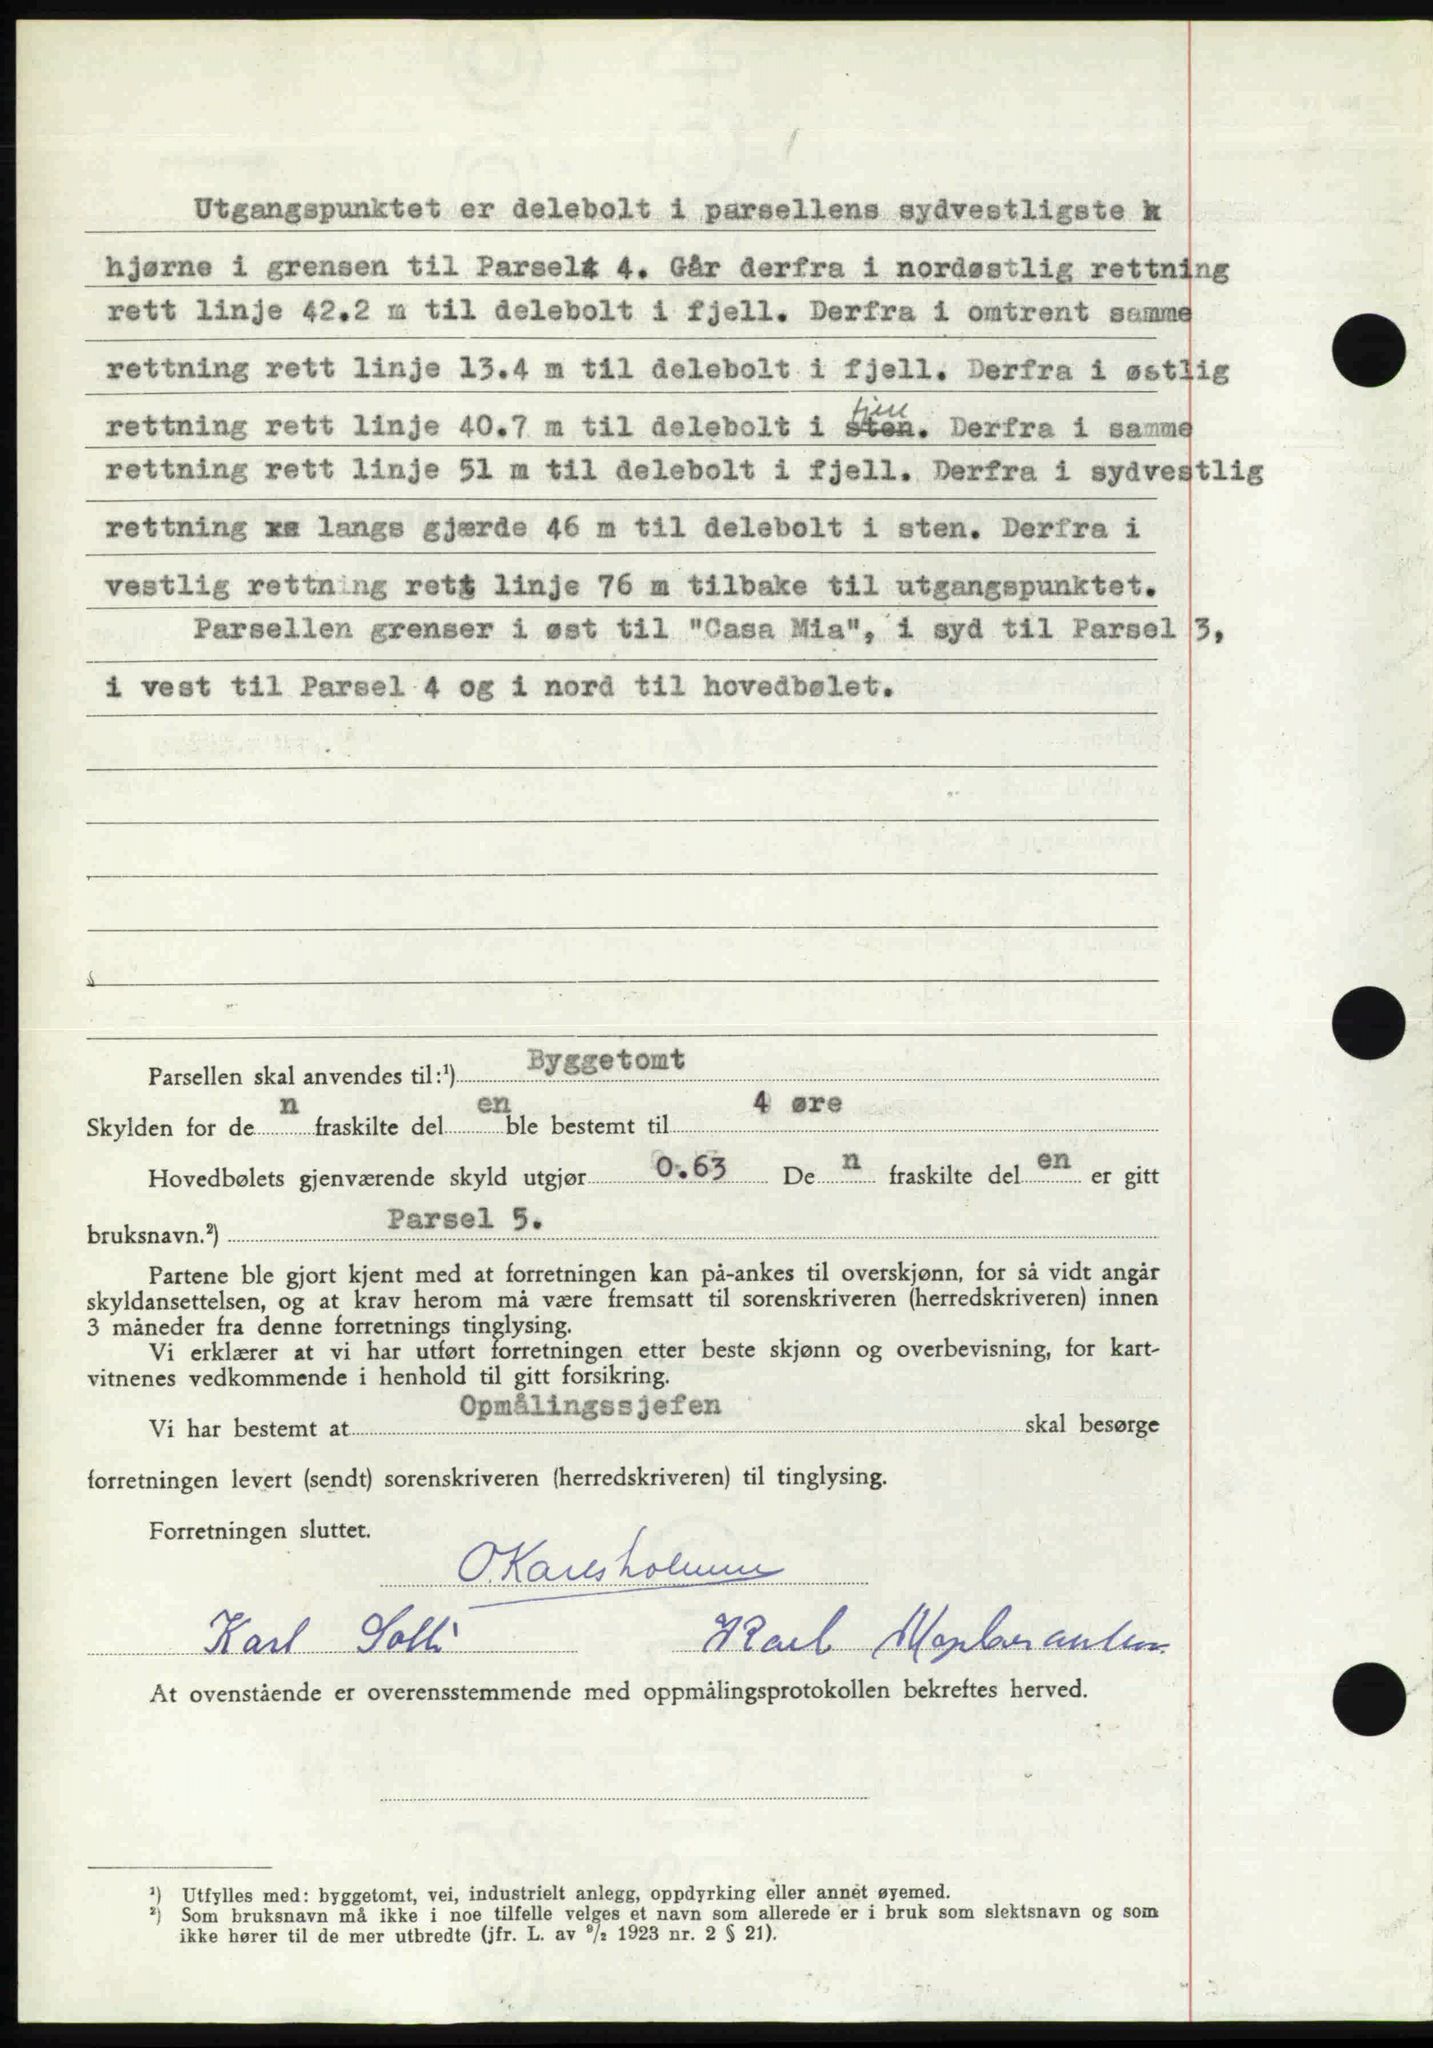 Utgangspunktet er delebolt i parsellens sydvestligste k
hjørne i grensen til Parselt 4. Går derfra i nordøstlig rettning
rett linje 42.2 m til delebolt i fjell. Derfra i omtrent samme
rettning rett linje 13.4 m til delebolt i fjell. Derfra i østlig
fjell
rettning rett linje 40.7 m til delebolt i sten. Derfra i samme
rettning rett linje 51 m til delebolt i fjell. Derfra i sydvestlig
rettning xs langs gjærde 46 m til delebolt i sten. Derfra i
vestlig rettning rett linje 76 m tilbake til utgangspunktet.
Parsellen grenser i øst til "Casa Mia", i syd til Parsel 3,
i vest til Parsel 4 og i nord til hovedbølet.
Parsellen skal anvendes til:¹) Byggetomt
Skylden for de n fraskilte del en ble bestemt til 4 øre
Hovedbølets gjenværende skyld utgjør 0.63 De n fraskilte del en er gitt
bruksnavn.²) Parsel 5.
Partene ble gjort kjent med at forretningen kan på-ankes til overskjønn, for så vidt angår
skyldansettelsen, og at krav herom må være fremsatt til sorenskriveren (herredskriveren) innen
3 måneder fra denne forretnings tinglysing.
Vi erklærer at vi har utført forretningen etter beste skjønn og overbevisning, for kart-
vitnenes vedkommende i henhold til gitt forsikring.
Vi har bestemt at Opmålingssjefen skal besørge
forretningen levert (sendt) sorenskriveren (herredskriveren) til tinglysing.
Forretningen sluttet.
O. Karlsholm
Karl Solli Karl
At ovenstående er overensstemmende med oppmålingsprotokollen bekreftes herved.
¹) Utfylles med: byggetomt, vei, industrielt anlegg, oppdyrking eller annet øyemed.
²) Som bruksnavn må ikke i noe tilfelle velges et navn som allerede er i bruk som slektsnavn og som
ikke hører til de mer utbredte (jfr. L. av ⁹/₂ 1923 nr. 2 § 21).